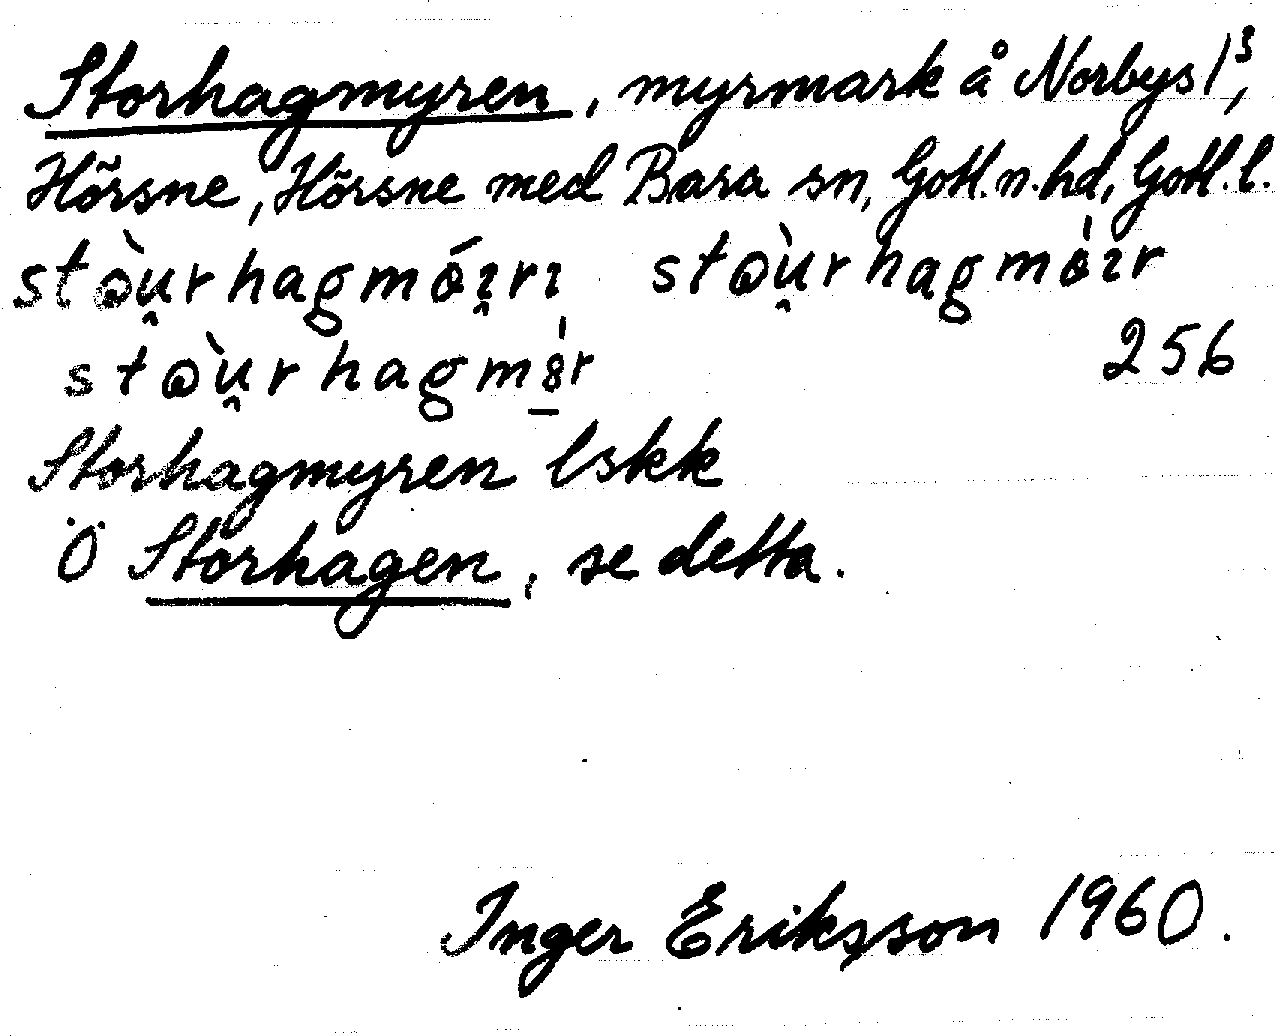 Storhagmyren, myrmark å Norbys 1³,
Hörsne, Hörsne med Bara sn, Gotl. n. hd, Gotl. l.
256
Storhagmyren lskk
Ö Storhagen, se detta.
Inger Eriksson 1960.